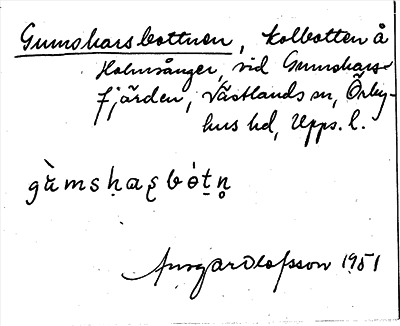 Gumsharsbottnen, kolbotten å
Holmsånger, vid Gumshars-
fjärden, Västlands sn, Örby-
hus hd, Upps. l.
gùmsḥaꜫbót̠n̥
Ansgar Olofsson 1951